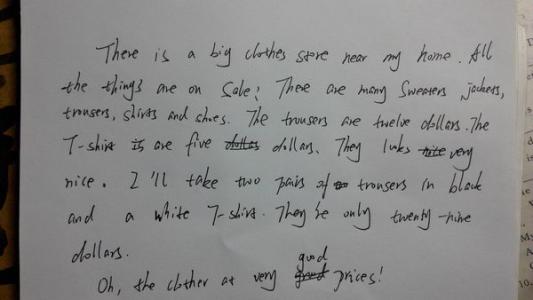 There is a big clothes store near my home. All
the things are on Sale! There are many Sweaters, jackets,
trousers, shirts and shoes. The trousers are twelve dollars. The
T-shirt is are five dollars. They looks nice very
nice. I'll take two pairs of trousers in black
and a white T-shirt. They're only twenty-nine
dollars.
good
Oh, the clother at very prices!